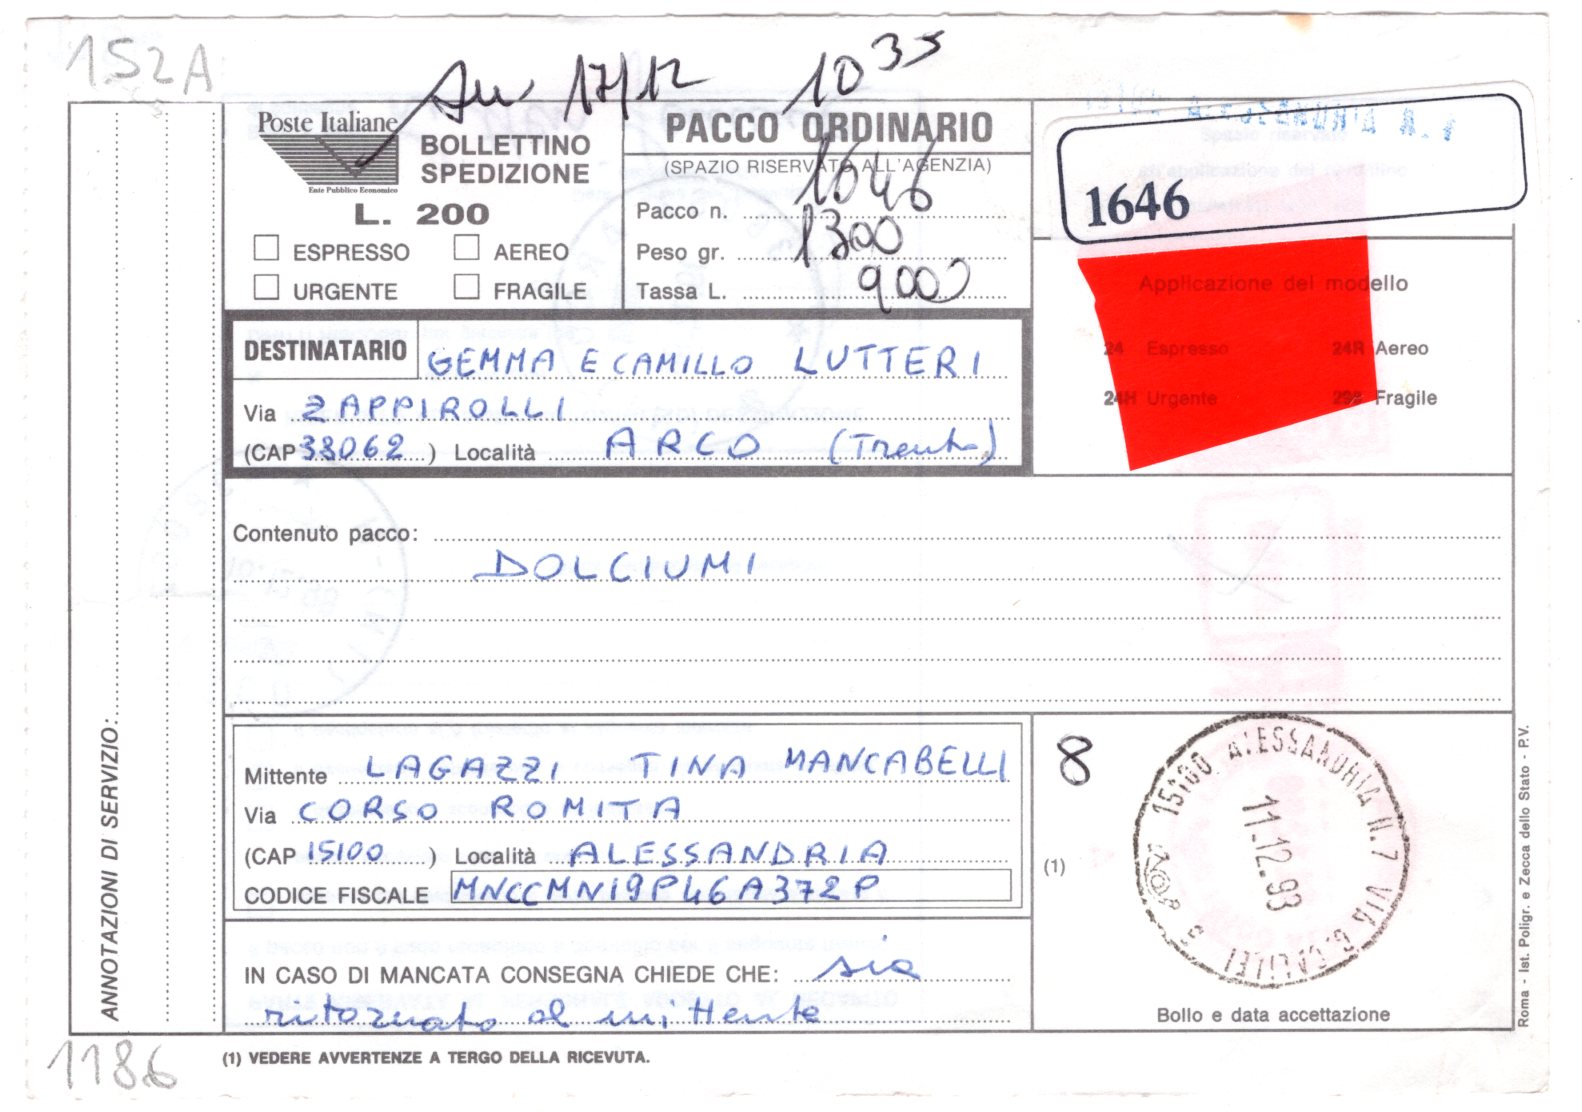 152A
Avv 17/12 10 35
Poste Italiane
Ente Pubblico Economico
BOLLETTINO
SPEDIZIONE
L. 200
ESPRESSO AEREO
URGENTE FRAGILE
PACCO ORDINARIO
(SPAZIO RISERVATO ALL'AGENZIA)
Pacco n. 1646
Peso gr. 1300
Tassa L. 9000
1646
Applicazione del modello
24 Espresso 24R Aereo
24H Urgente Fragile
DESTINATARIO GEMMA E CAMILLO LUTTERI
Via ZAPPIROLLI
(CAP 38062) Località ARCO (Trento)
Contenuto pacco:
DOLCIUMI
ANNOTAZIONI DI SERVIZIO:
Mittente LAGAZZI TINA MANCABELLI
Via CORSO ROMITA
(CAP 15100) Località ALESSANDRIA
CODICE FISCALE MNCCMN19P46A372P
IN CASO DI MANCATA CONSEGNA CHIEDE CHE: sia
ritornato al mittente
8
(1)
15100 ALESSANDRIA N.7 VIA G.GALILEI
11.12.93
Bollo e data accettazione
Roma - Ist. Poligr. e Zecca dello Stato - P.V.
1186
(1) VEDERE AVVERTENZE A TERGO DELLA RICEVUTA.